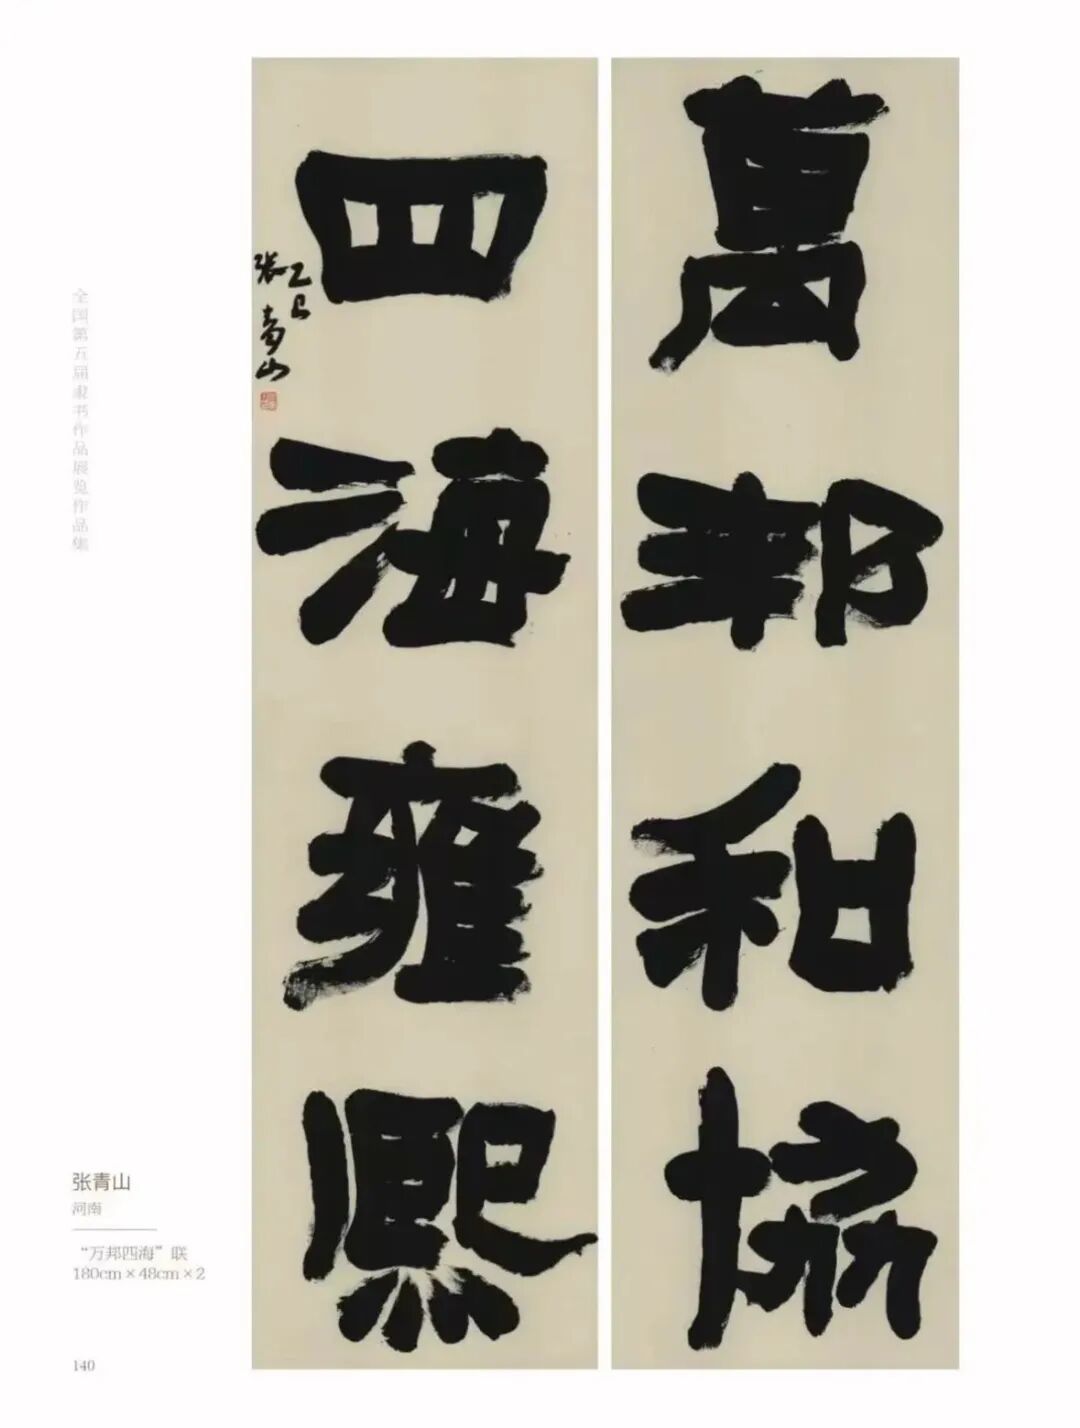 萬邦和協
四海雍熙
乙巳
張青山
全国第五届隶书作品展览作品集
张青山
河南
“万邦四海”联
180cm×48cm×2
140